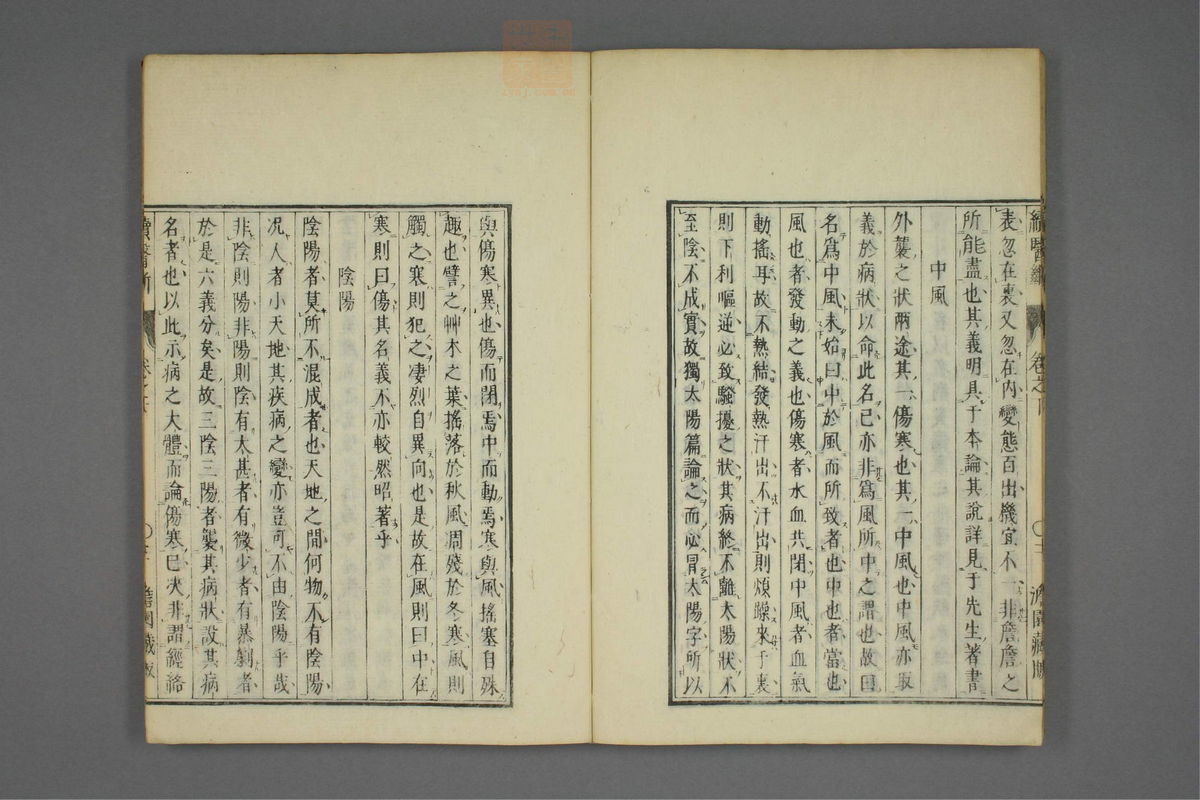 表忽在裏又忽在內變態百出機宜不一非詹詹之
所能盡也其義明具于本論其說詳見于先生著書
中風
外襲之狀兩途其一傷寒也其一中風也中風亦取
義於病狀以命此名己亦非爲風所中之謂也故曰
名爲中風未始曰中於風而所致者也中也者當也
風也者發動之義也傷寒者水血共閉中風者血氣
動搖耳故不熱結發熱汗出不汗出則煩躁來于裏
則下利嘔逆必致騷擾之狀其病終不離太陽狀不
至陰不成實故獨太陽篇論之而必冒太陽字所以
與傷寒異也傷而閉焉中而動焉寒與風搖塞自殊
趣也譬之艸木之葉搖落於秋風凋殘於冬寒風則
觸之寒則犯之凄烈自異向也是故在風則曰中在
寒則曰傷其名義不亦較然昭著乎
陰陽
陰陽者莫所不混成者也天地之間何物不有陰陽
况人者小天地其疾病之變亦豈可不由陰陽乎哉
非陰則陽非陽則陰有太甚者有微少者有暴劇者
於是六義分矣是故三陰三陽者襲其病狀設其病
名者也以此示病之大體而論傷寒巳决非謂經絡